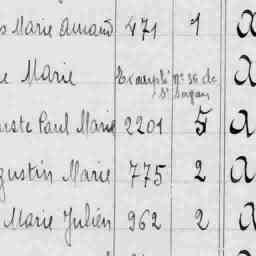 Marie Amand 471 1 a
Marie Exempté n° 56 de a
Paul Marie 2201 5 a
gustin Marie 775 2 a
Marie Julien 962 2 a